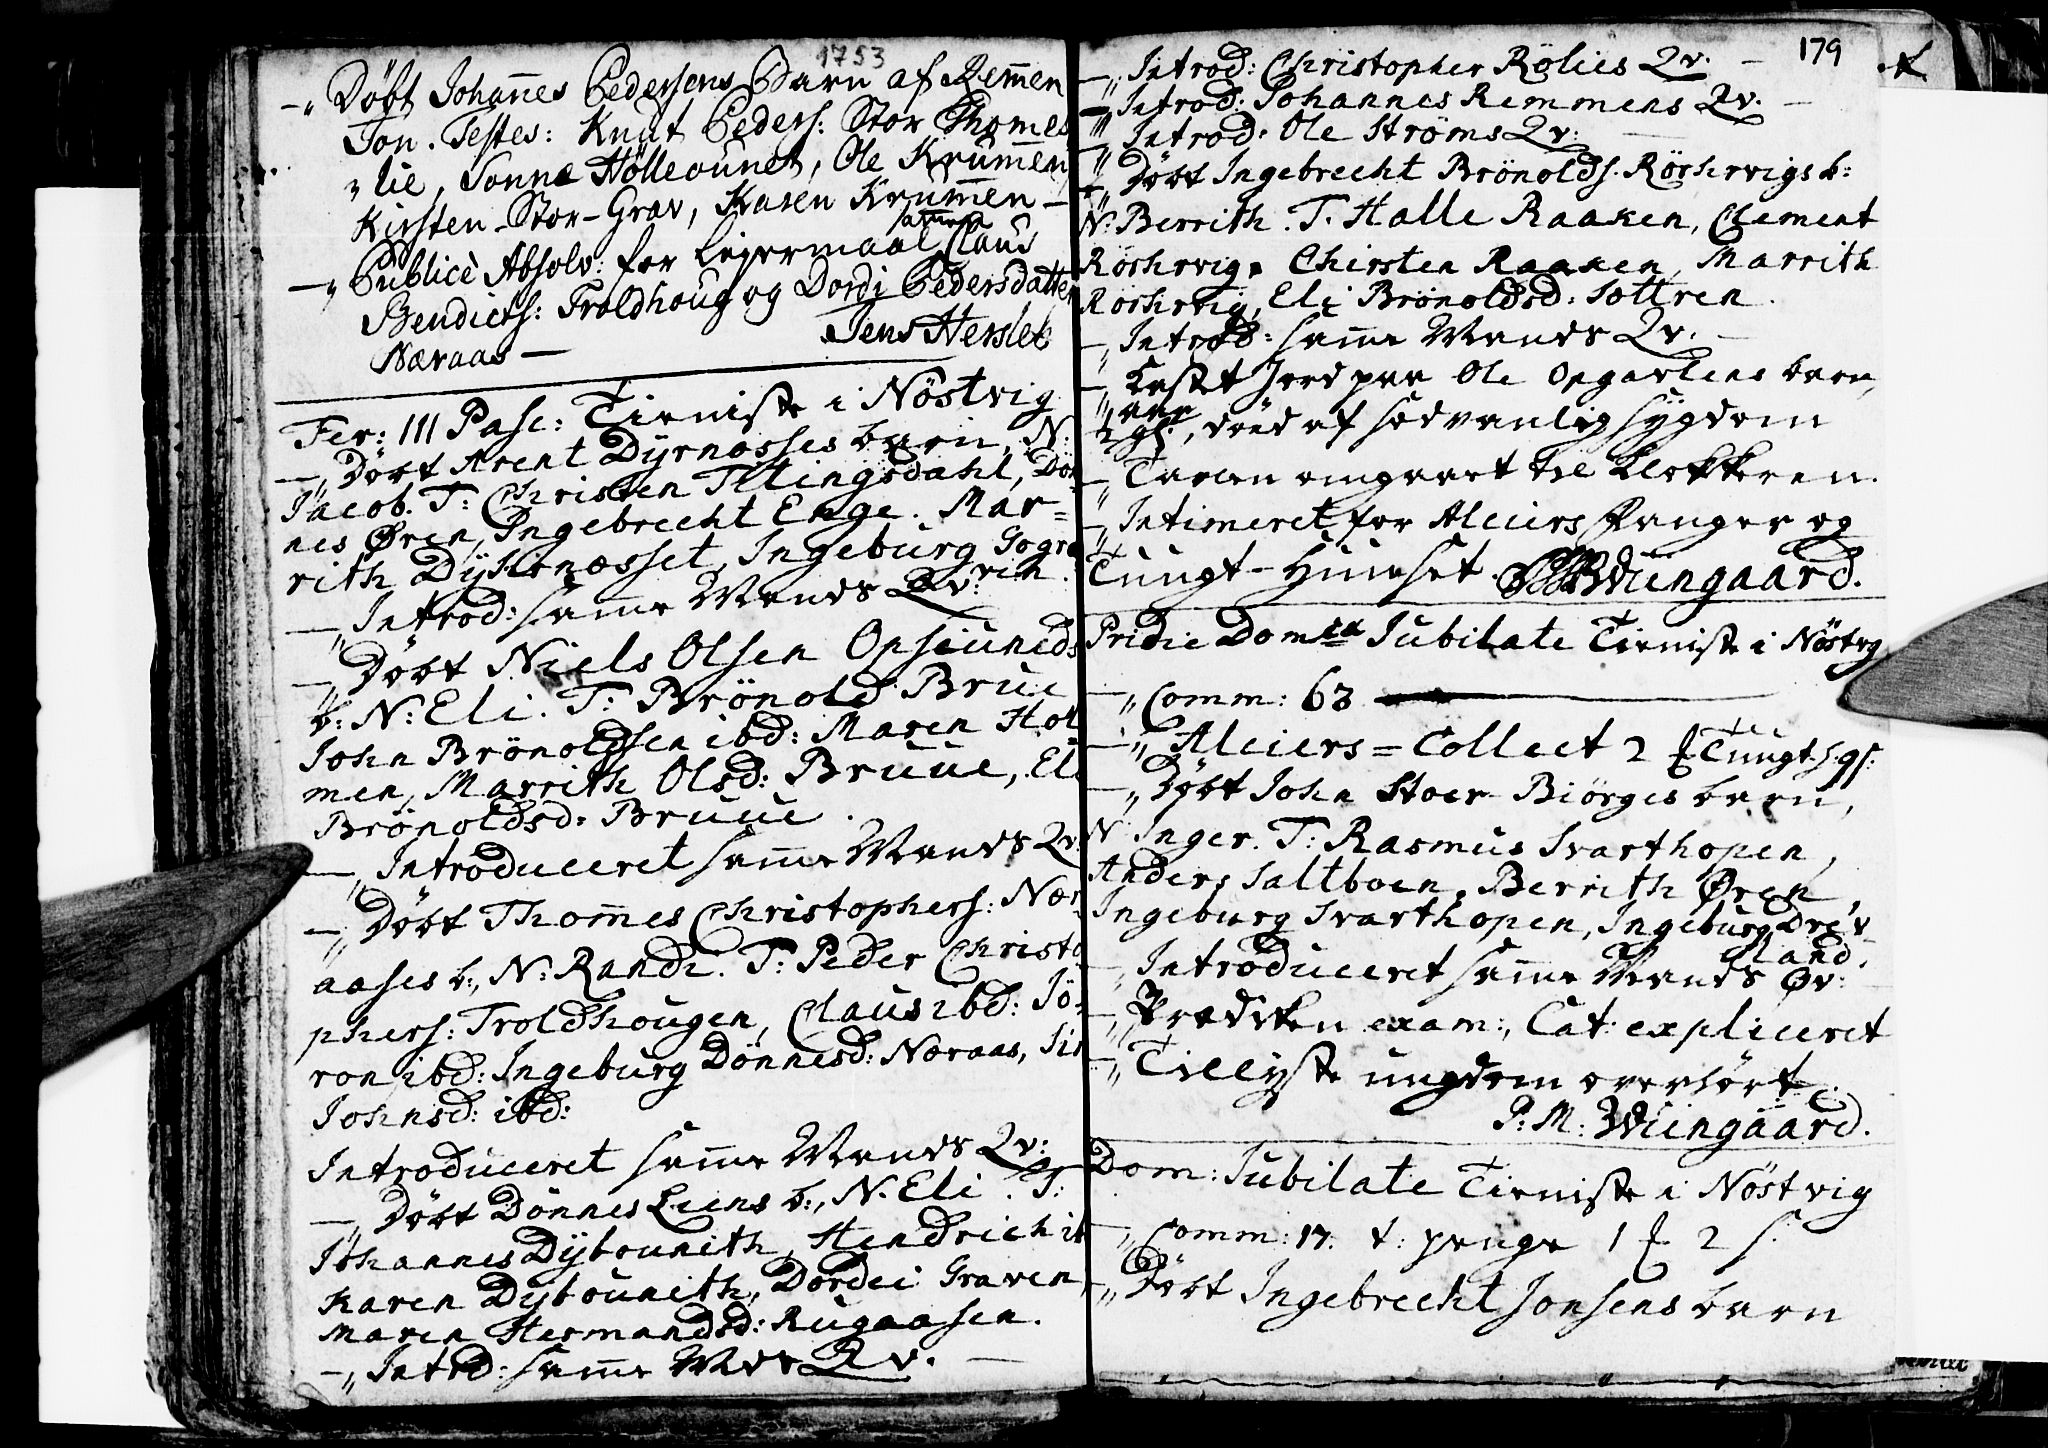 1753
-„ Döbt Johan̄es Pedersens Barn af Rem̄en
Jon. Testes: Knut Peders: Stor Thomes
„lie, Sonne Hölleaunet, Ole Krum̄en
Kirsten Stor-Grav, Karen Krum̄en -
-„ Publicè Absolv: for leyermaal Claus
Bendichs: Troldhoug og Dordj Pedersdatter
Næraas -
Jens Hersleb
Fer: III Pasc: Tieniste i Nöstvig
-„ Döbt Arent Dyrnæsses barn, N:
Jacob. T: Christen Illingsdahl, Dön
nes Øren, Ingebrecht Enge. Mar=
rith Dyhrnæsset, Ingeburg Sogra
ren.
-„ Introd: sam̄e Mands Qv:
-„ Döbt Niels Olsen Opseuneds
b: N: Eli. T: Brönold Brue
John Brönoldsen ibd: Maren Hol
men, Marrith Olsd: Bruue, Eli
Brönoldsd: Bruue.
-„ Introduceret sam̄e Mands Qv:
-„ Döbt Thom̄es Christophers: Nær
aases b:, N: Randi. T: Peder Christo
phers: Troldhougen, Claus ibd: Sö
ron ibd: Ingeburg Dönnesd: Næraas, Sis
Johnsd: ibd:
Introduceret sam̄e Mands Qv:
-„ Döbt Dönnes Liens b:, N. Eli. T:
Johannes Dybounith, Hendrich ib
Karen Dybounith, Dordei Graven
Maren Hermandsd: Rugaasen.
-„ Intrd: sam̄e Mds Qv. -
179
-„ Introd: Christopher Rölies Qv. -
-„ Introd: Johannes Remmens Qv. -
„ Introd: Ole Ströms Qv:
„ Döbt Ingebrecht Brönolds. Röshrvigs b:
N: Berrith. T. Halle Raaken, Clement
Röshrvig, Chirsten Raaken, Marrith
Röshrvig, Eli Brönoldsd: Sottren.
-„ Introd: sam̄e Mands Qv. -
-„ Kastet Jord paa Ole Opgartens barn,
aar
2 gl:, död af sædvanlig sygdom
-„ Tavlen omgaaet til Klokkeren.
-„ Intimeret for Alciers Fanger og
Tuugt-Huuset. PM Wiingaard.
Pridie Domca Jubilate Tieniste i Nöstvg
-„ Comm: 63
-„ Alciers=Collect 2 Tuugt.h: 9 s:
-„ Döbt John Stoer Biörges barn,
N: Inger. T: Rasmus Svarthopen,
Anders Saltboen, Berrith Øren,
Ingeburg Svarthopen, Ingeburg Drev-
land.
-„ Introduceret sam̄e Mands Qv:
-„ Prædiken exam:, Cat: expliceret
-„ Tillyste ungdom overhört.
P: M: Wiingaard.
Dom: Jubilate Tieniste i Nöstvig
-„ Comm: 17. t: penge 1 2 s.
-„ Döbt Ingebrecht Jonsens barn